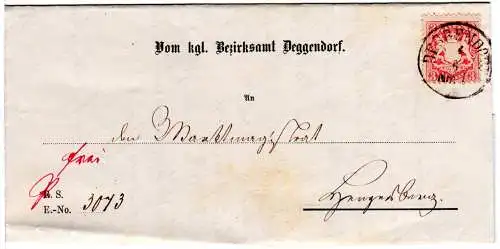 DEGGENDORF
Vom kgl. Bezirksamt Deggendorf.
An
den Marktmagistrat
frei
R. S.
Hengersberg.
E.-No. 3073